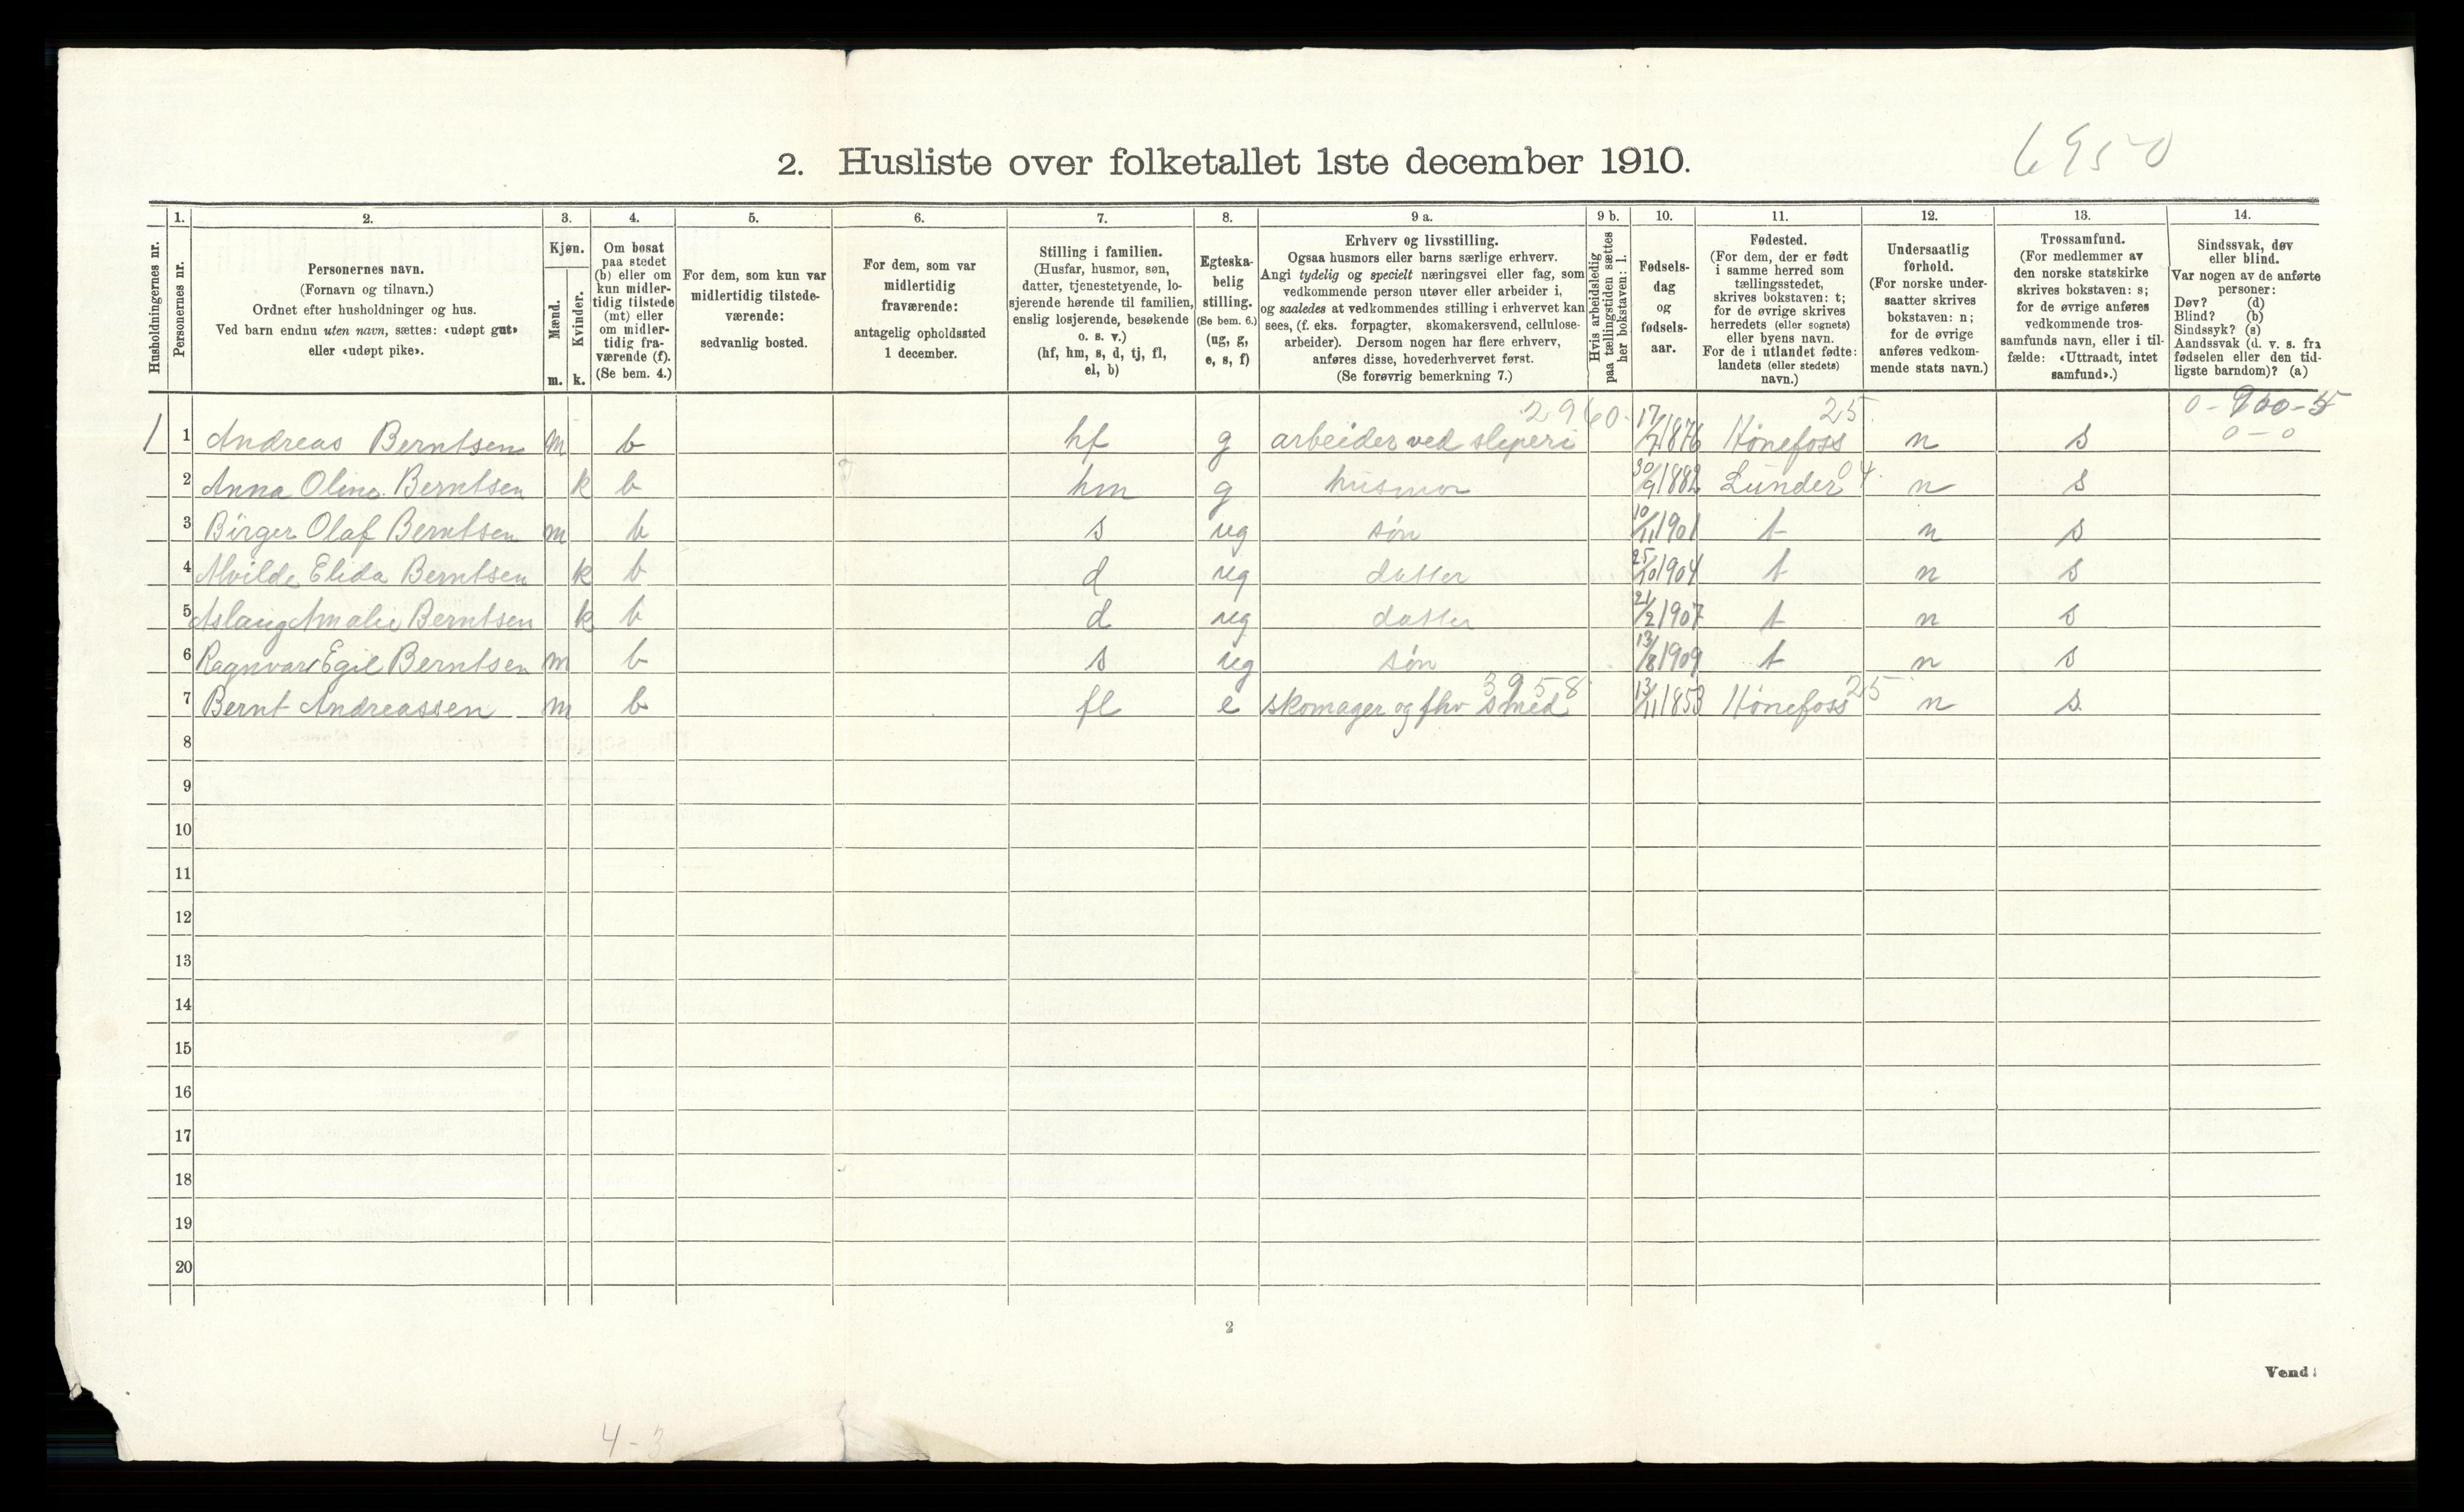 6950
2. Husliste over folketallet 1ste december 1910.
Husholdningernes nr.
1.
Personernes nr.
2.
Personernes navn.
(Fornavn og tilnavn.)
Ordnet efter husholdninger og hus.
Ved barn endnu uten navn, sættes: «udøpt gut»
eller «udøpt pike».
3.
Kjøn.
Mænd.
m.
Kvinder.
k.
4.
Om bosat
paa stedet
(b) eller om
kun midler-
tidig tilstede
(mt) eller
om midler-
tidig fra-
værende (f).
(Se bem. 4.)
5.
For dem, som kun var
midlertidig tilstede-
værende:
sedvanlig bosted.
6.
For dem, som var
midlertidig
fraværende:
antagelig opholdssted
1 december.
7.
Stilling i familien.
(Husfar, husmor, søn,
datter, tjenestetyende, lo-
sjerende hørende til familien,
enslig losjerende, besøkende
o. s. v.)
(hf, hm, s, d, tj, fl,
el, b)
8.
Egteska-
belig
stilling.
(Se bem. 6.)
(ug, g,
e, s, f)
9 a.
Erhverv og livsstilling.
Ogsaa husmors eller barns særlige erhverv.
Angi tydelig og specielt næringsvei eller fag, som
vedkommende person utøver eller arbeider i,
og saaledes at vedkommendes stilling i erhvervet kan
sees, (f. eks. forpagter, skomakersvend, cellulose-
arbeider). Dersom nogen har flere erhverv,
anføres disse, hovederhvervet først.
(Se forøvrig bemerkning 7.)
9 b.
Hvis arbeidsledig
paa tællingstiden sættes
her bokstaven: l.
10.
Fødsels-
dag
og
fødsels-
aar.
11.
Fødested.
(For dem, der er født
i samme herred som
tællingsstedet,
skrives bokstaven: t;
for de øvrige skrives
herredets (eller sognets)
eller byens navn.
For de i utlandet fødte:
landets (eller stedets)
navn.)
12.
Undersaatlig
forhold.
(For norske under-
saatter skrives
bokstaven: n;
for de øvrige
anføres vedkom-
mende stats navn.)
13.
Trossamfund.
(For medlemmer av
den norske statskirke
skrives bokstaven: s;
for de øvrige anføres
vedkommende tros-
samfunds navn, eller i til-
fælde: «Uttraadt, intet
samfund».)
14.
Sindssvak, døv
eller blind.
Var nogen av de anførte
personer:
Døv? (d)
Blind? (b)
Sindssyk? (s)
Aandssvak (d. v. s. fra
fødselen eller den tid-
ligste barndom)? (a)
2960. 25
1 1 Andreas Berntsen m b hf g arbeider ved sliperi 17/7 1876 Hønefoss n s 0-0
2 Anna Oline Berntsen k b hm g husmor 30/9 1882 Lunder 04. n s
3 Birger Olaf Berntsen m b s ug søn 10/11 1901 t n s
4 Alvilde Elida Berntsen k b d ug datter 25/10 1904 t n s
5 Aslaug Amalie Berntsen k b d ug datter 21/2 1907 t n s
6 Ragnvart Egil Berntsen m b s ug søn 13/8 1909 t n s
3958. 25
7 Bernt Andreassen m b fl e skomager og fhv smed 13/11 1853 Hønefoss n s.
8
9
10
11
12
13
14
15
16
17
18
19
20
2
Vend!
4-3